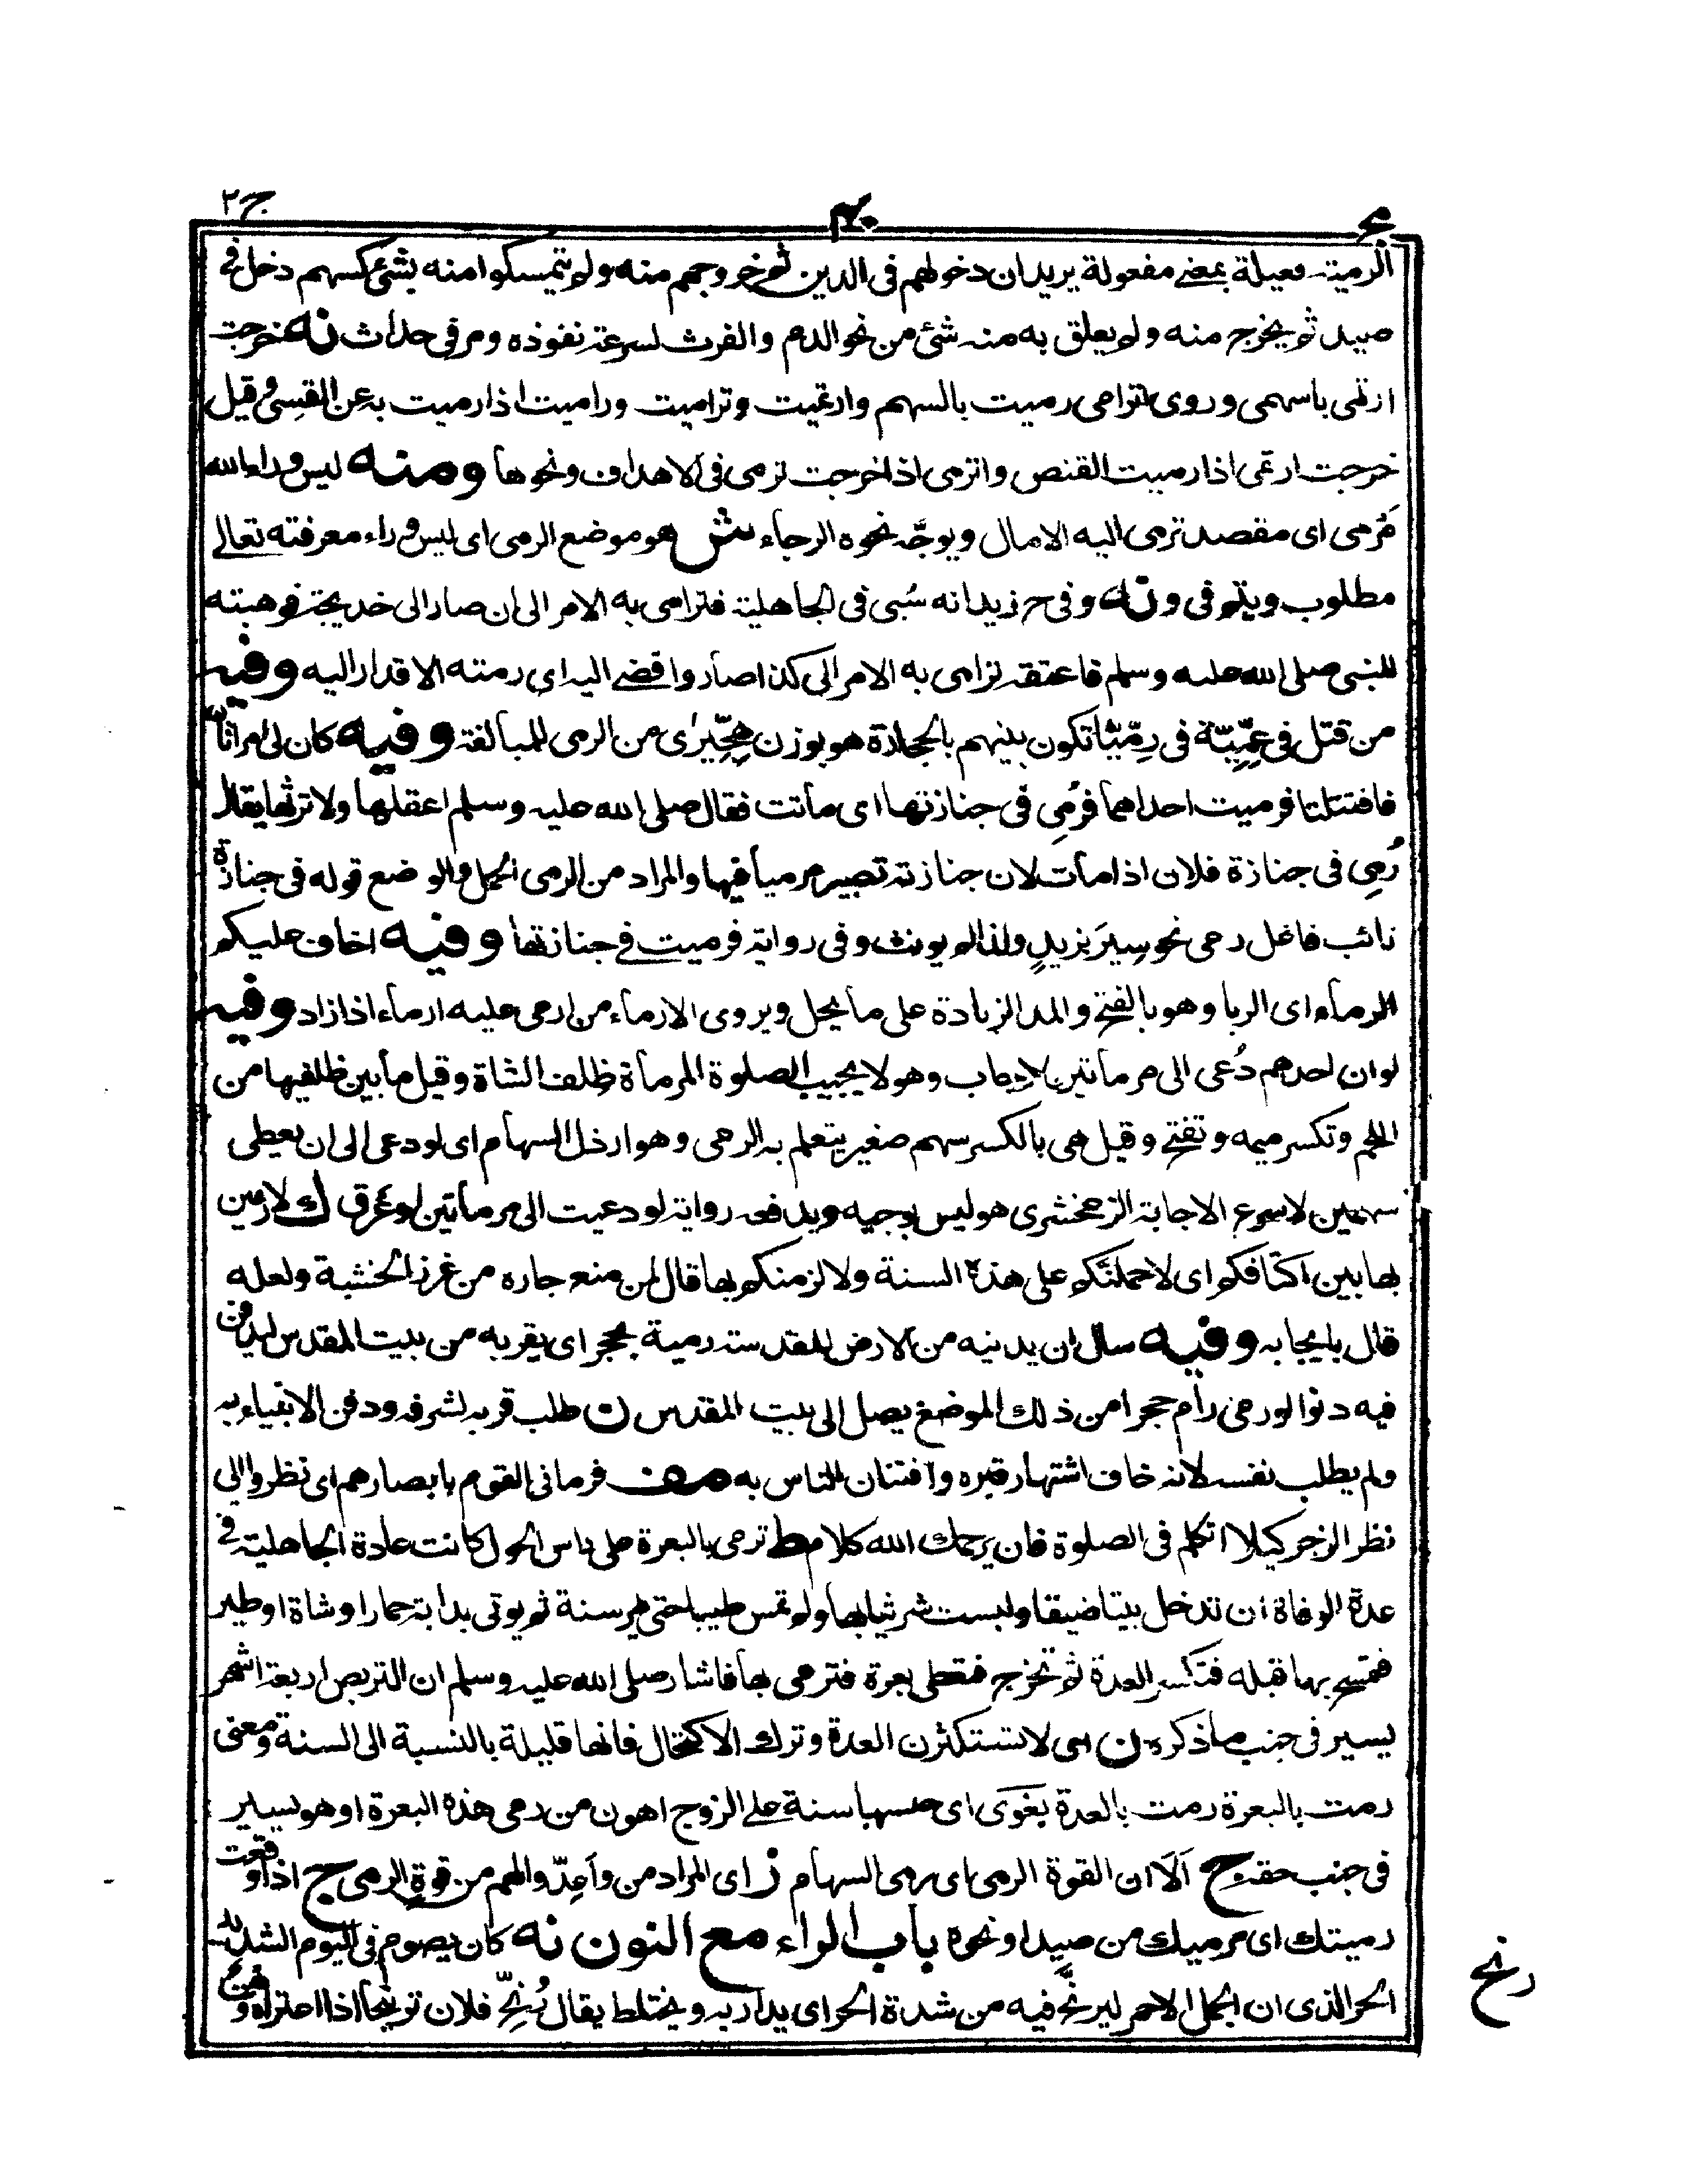 ج ٢
الرمية فعيلة بمعنى مفعولة يريد ان دخولهم فى الدين ثم خروجهم منه ولم يتمسكوا منه بشئ كسهم دخل فى
صيد ثم يخرج منه ولم يعلق به منه شئ من نحو الدم والفرث لسرعة نفوذه ومر فى حداث نه خرجت
ارتمى باسهمى وروى اترامى رميت بالسهم وارتميت وتراميت وراميت اذا رميت به عن القسى وقيل
خرجت ارتمى اذا رميت القنص واترمى اذا خرجت ترمى فى الاهداف ونحوها ومنه ليس وراء الله
مَرمى اى مقصد ترمى اليه الامال ويوجّه نحوه الرجاء ش هو موضع الرمى اى ليس وراء معرفته تعالى
مطلوب ويتم فى و نه وفى ح زيد انه سُبى فى الجاهلية فترامى به الامر الى ان صار الى خديجة فوهبته
للنبى صلى الله عليه وسلم فاعتقه ترامى به الامر الى كذا صار وافضى اليه اى رمته الاقدار اليه وفيه
من قتل فى عِمِّيّة فى رِمِّيّا تكون بينهم بالحجارة هو بوزن هِجِّيرَى من الرمى للمبالغة وفيه كان لى امراتان
فاقتتلتا فرميت احداهما فرُمِى فى جنازتها اى ماتت فقال صلى الله عليه وسلم اعقلها ولا ترثها يقال
رُمِى فى جنازة فلان اذا مات لان جنازته تصير مرميا فيها والمراد من الرمى الحمل والوضع قوله فى جنازة
نائب فاعل رمى نحو سِيرَ بزيدٍ ولذا لم يونث وفى رواية فرميت فى جنازتها وفيه اخاف عليكم
الرماء اى الربا وهو بالفتح والمد الزيادة على ما يحل ويروى الارماء من ارمى عليه ارماء اذا زاد وفيه
لو ان احدهم دُعى الى مرماتين لاجاب وهو لا يجيب الصلوة المرماة ظلف الشاة وقيل ما بين ظلفيها من
اللحم وتكسر ميمه وتفتح وقيل هى بالكسر سهم صغير يتعلم به الرمى وهو ارذل السهام اى لو دعى الى ان يعطى
سهمين لاسرع الاجابة الزمخشرى هو ليس بوجيه ويدفعه رواية لو دعيت الى مرماتين او عرق ك لارمين
بها بين اكتافكم اى لاحملنّكم على هذه السنة ولالزمنكم بها قال لمن منع جاره من غرز الخشبة ولعله
قال بايجابه وفيه سال ان يدنيه من الارض المقدسة رمية بحجر اى يقربه من بيت المقدس ليدفن
فيه دنوا لو رمى رام حجرا من ذلك الموضع يصل الى بيت المقدس ن طلب قربه لشرفه ودفن الانبياء به
ولم يطلب نفسه لانه خاف اشتهار قبره وافتتان الناس به مف فرمانى القوم بابصارهم اى نظروا الى
نظر الزجر كيلا اتكلم فى الصلوة فان يرحمك الله كلام ط ترمى بالبعرة على راس الحول كانت عادة الجاهلية فى
عدة الوفاة ان تدخل بيتا ضيقا ولبست شر ثيابها ولم تمس طيبا حتى يمر سنة ثم يوتى بدابة حمار او شاة او طير
فتمسح بها قبله فتكسر العدة ثم تخرج فتعطى بعرة فترمى بها فاشار صلى الله عليه وسلم ان التربص اربعة اشهر
يسير فى جنب ما ذكره ن اى لا تستكثرن العدة وترك الاكتحال فانها قليلة بالنسبة الى السنة ومعنى
رمت بالبعرة رمت بالعدة اى حبسها سنة على الزوج اهون من رمى هذه البعرة او هو يسير
فى جنب حقه ج اَلَا ان القوة الرمى اى رمى السهام ز اى المراد من واَعِدّوا لهم من قوة الرمى ج اذا وقعت
رميتك اى مرميك من صيد او نحوه باب الراء مع النون نه كان يصوم فى اليوم الشديد
الحر الذى ان الجمل الاحمر ليرنّح فيه من شدة الحر اى يدار به ويختلط يقال رُنِّح فلان ترنيحا اذا اعتراه وهن
رنح